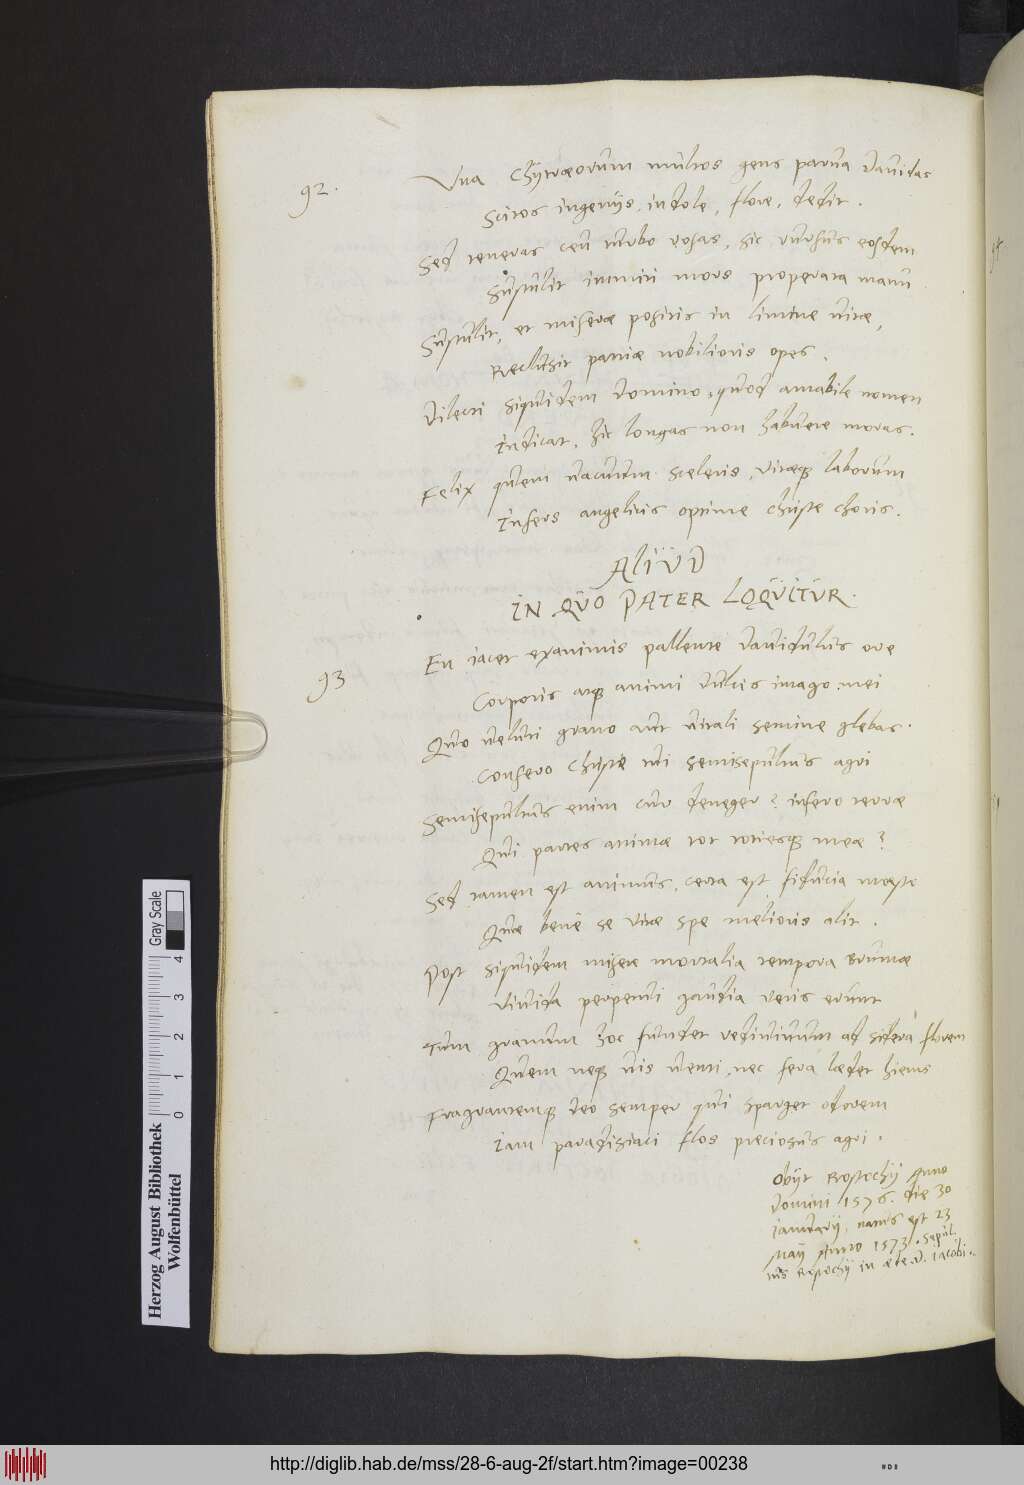 92. Vna Chÿtræorum multos gens parua Dauidas
Scitos ingenijs, indole, flore, dedit.
Sed teneras ceu turbo rosas, sic rursus eosdem
Sustulit immiti mors properata manu
Sustulit, et miseræ positis in limine vitæ,
Reclusit patriæ nobilioris opes.
Dilecti siquidem Domino, quod amabile nomen
Indicat, hic longas non habuere moras.
Felix quem vacuum sceleris, vitæq laborum
Inferis angelicis optime Christe choris.
ALIUD
IN QUO PATER LOQUITUR.
93 En iacet exanimis pallenti Dauidulus ore
Corporis atq animi dulcis imago mei
Quo veluti grano aut vitali semine glebas.
Consero Christe tui semisepultus agri
Semisepultus enim cur deneger? infero terræ
Qui partes animæ tot totiesq meæ?
Sed tamen est animus, certa est fiducia mæsto
Quæ bene se vitæ spe melioris alit.
Post siquidem miseræ mortalia tempora Brumæ
Viuida perpetui gaudia veris erunt
Tum granum hoc fundet rediuiuum ad sidera florem
Quem neq vis venti, nec fera lædet hiems
Fragrantemq Deo semper qui sparget odorem
Iam paradisiaci flos preciosus agri.
Obijt Rostochij Anno
Domini 1576. die 30
Ianuarij, natus est 23
Maij Anno 1573. Sepul
tus Rostochij in æde D. Iacobi.
Gray Scale
0 1 2 3 4
Herzog August Bibliothek
Wolfenbüttel
http://diglib.hab.de/mss/28-6-aug-2f/start.htm?image=00238